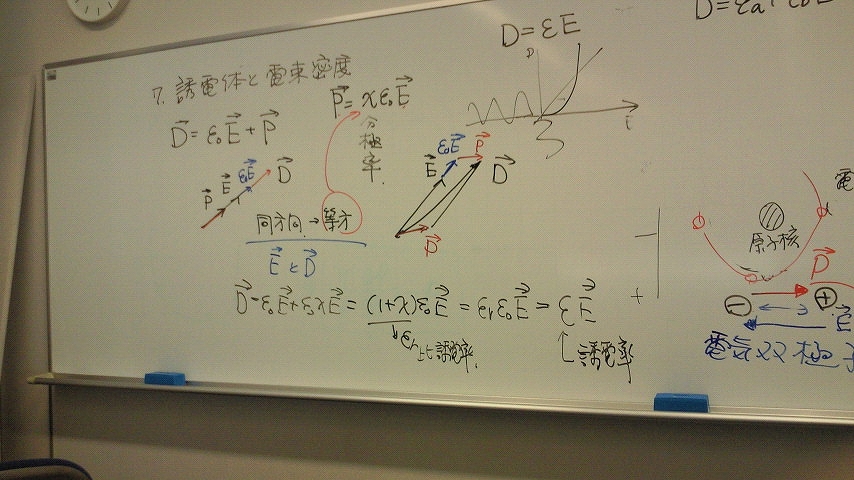 7. 誘電体と電束密度
D⃗ = ε₀E⃗ + P⃗
P⃗ = χε₀E⃗
分極率
P⃗ E⃗ ε₀E⃗ D⃗
同方向→等方
E⃗とD⃗
E⃗ ε₀E⃗ P⃗ D⃗
P⃗
D⃗ = ε₀E⃗ + ε₀χE⃗ = (1+χ)ε₀E⃗ = εrε₀E⃗ = εE⃗
εr 比誘電率
誘電率
D = εE
D
原子核
P⃗
− +
E⃗
電気双極子
電
+